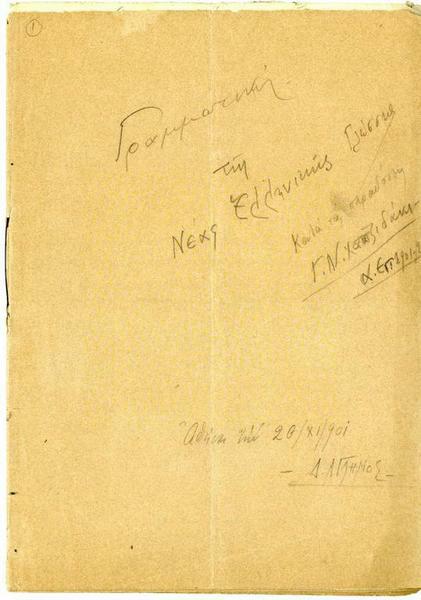 1
Γραμματική
της
Νέας Ελληνικής Γλώσσης
Κατά τας παραδόσεις
Γ. Ν. Χατζιδάκι
Αθήναι τη 20/XI/901